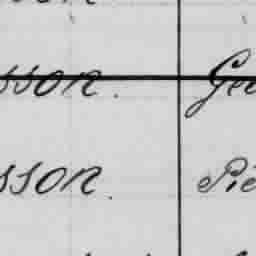 sson. Geo
sson. Pie